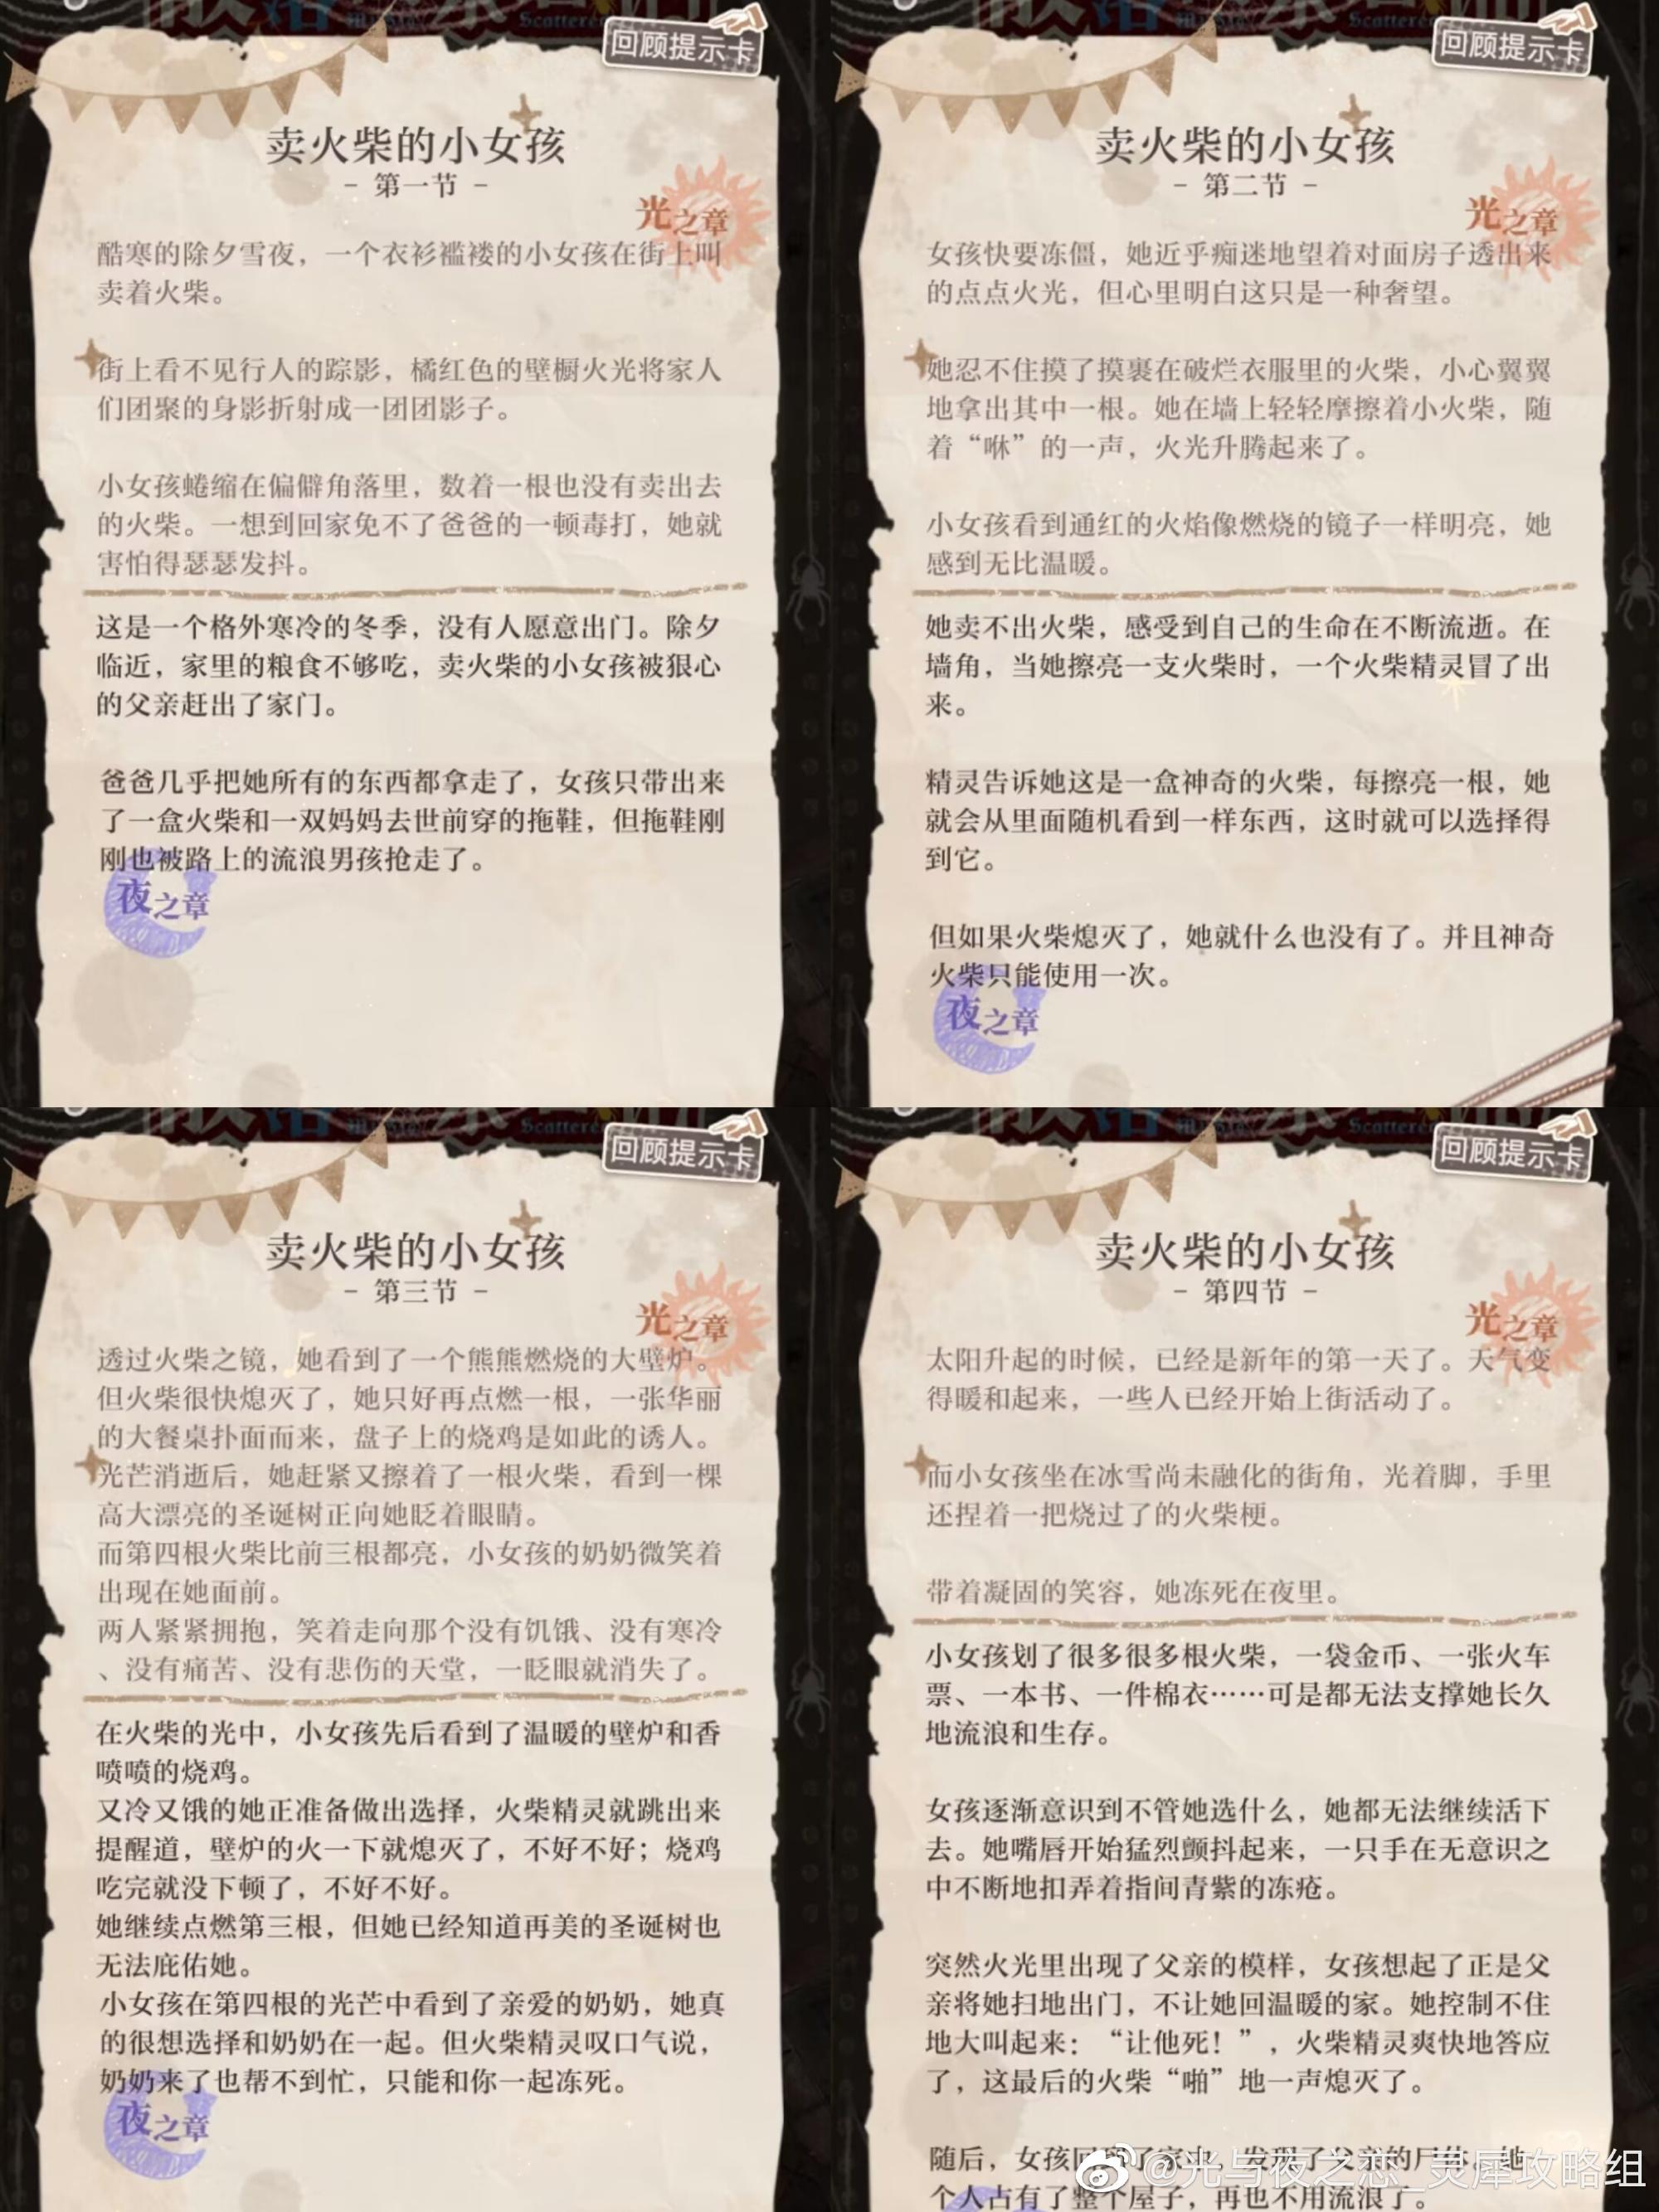 回顾提示卡
卖火柴的小女孩
- 第一节 -
光之章
酷寒的除夕雪夜，一个衣衫褴褛的小女孩在街上叫
卖着火柴。
街上看不见行人的踪影，橘红色的壁橱火光将家人
们团聚的身影折射成一团团影子。
小女孩蜷缩在偏僻角落里，数着一根也没有卖出去
的火柴。一想到回家免不了爸爸的一顿毒打，她就
害怕得瑟瑟发抖。
这是一个格外寒冷的冬季，没有人愿意出门。除夕
临近，家里的粮食不够吃，卖火柴的小女孩被狠心
的父亲赶出了家门。
爸爸几乎把她所有的东西都拿走了，女孩只带出来
了一盒火柴和一双妈妈去世前穿的拖鞋，但拖鞋刚
刚也被路上的流浪男孩抢走了。
夜之章
回顾提示卡
卖火柴的小女孩
- 第二节 -
光之章
女孩快要冻僵，她近乎痴迷地望着对面房子透出来
的点点火光，但心里明白这只是一种奢望。
她忍不住摸了摸裹在破烂衣服里的火柴，小心翼翼
地拿出其中一根。她在墙上轻轻摩擦着小火柴，随
着“咻”的一声，火光升腾起来了。
小女孩看到通红的火焰像燃烧的镜子一样明亮，她
感到无比温暖。
她卖不出火柴，感受到自己的生命在不断流逝。在
墙角，当她擦亮一支火柴时，一个火柴精灵冒了出
来。
精灵告诉她这是一盒神奇的火柴，每擦亮一根，她
就会从里面随机看到一样东西，这时就可以选择得
到它。
但如果火柴熄灭了，她就什么也没有了。并且神奇
火柴只能使用一次。
夜之章
回顾提示卡
卖火柴的小女孩
- 第三节 -
光之章
透过火柴之镜，她看到了一个熊熊燃烧的大壁炉。
但火柴很快熄灭了，她只好再点燃一根，一张华丽
的大餐桌扑面而来，盘子上的烧鸡是如此的诱人。
光芒消逝后，她赶紧又擦着了一根火柴，看到一棵
高大漂亮的圣诞树正向她眨着眼睛。
而第四根火柴比前三根都亮，小女孩的奶奶微笑着
出现在她面前。
两人紧紧拥抱，笑着走向那个没有饥饿、没有寒冷
、没有痛苦、没有悲伤的天堂，一眨眼就消失了。
在火柴的光中，小女孩先后看到了温暖的壁炉和香
喷喷的烧鸡。
又冷又饿的她正准备做出选择，火柴精灵就跳出来
提醒道，壁炉的火一下就熄灭了，不好不好；烧鸡
吃完就没下顿了，不好不好。
她继续点燃第三根，但她已经知道再美的圣诞树也
无法庇佑她。
小女孩在第四根的光芒中看到了亲爱的奶奶，她真
的很想选择和奶奶在一起。但火柴精灵叹口气说，
奶奶来了也帮不到忙，只能和你一起冻死。
夜之章
回顾提示卡
卖火柴的小女孩
- 第四节 -
光之章
太阳升起的时候，已经是新年的第一天了。天气变
得暖和起来，一些人已经开始上街活动了。
而小女孩坐在冰雪尚未融化的街角，光着脚，手里
还捏着一把烧过了的火柴梗。
带着凝固的笑容，她冻死在夜里。
小女孩划了很多很多根火柴，一袋金币、一张火车
票、一本书、一件棉衣……可是都无法支撑她长久
地流浪和生存。
女孩逐渐意识到不管她选什么，她都无法继续活下
去。她嘴唇开始猛烈颤抖起来，一只手在无意识之
中不断地扣弄着指间青紫的冻疮。
突然火光里出现了父亲的模样，女孩想起了正是父
亲将她扫地出门，不让她回温暖的家。她控制不住
地大叫起来：“让他死！”，火柴精灵爽快地答应
了，这最后的火柴“啪”地一声熄灭了。
随后，女孩回到了家中，发现了父亲的尸体。她一
个人占有了整个屋子，再也不用流浪了。
@光与夜之恋_灵犀攻略组